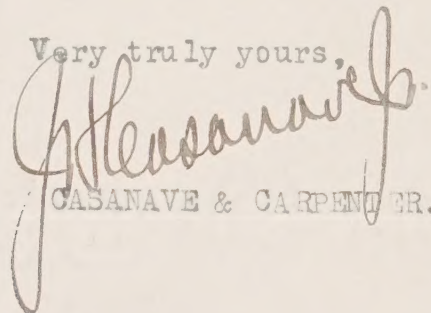 Very truly yours,
CASANAVE & CARPENTER.